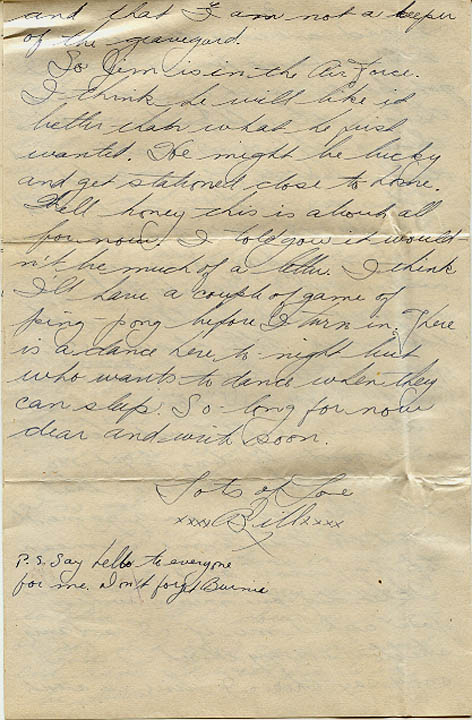 and that I am not a keeper
of the graveyard.
So Jim is in the Air Force.
I think he will like it
better than what he first
wanted. He might be lucky
and get stationed close to home.
Well honey this is about all
for now. I told you it would-
n't be much of a letter. I think
I'll have a couple of game of
ping-pong before I turn in. There
is a dance here to-night but
who wants to dance when they
can sleep. So-long for now
dear and write soon.
Lots of Love
xxxx Bill xxxx
P.S. Say hello to everyone
for me. Don't forget Burnie